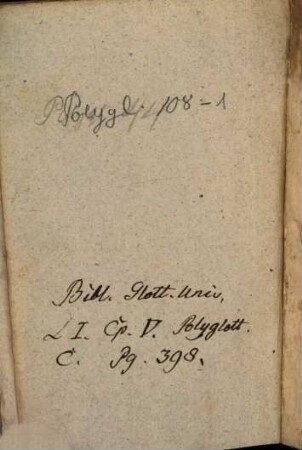 Polygl. 108-1
Bibl. Glott. Univ.
L I. Cp. V. Polyglott.
C. Pg. 398.